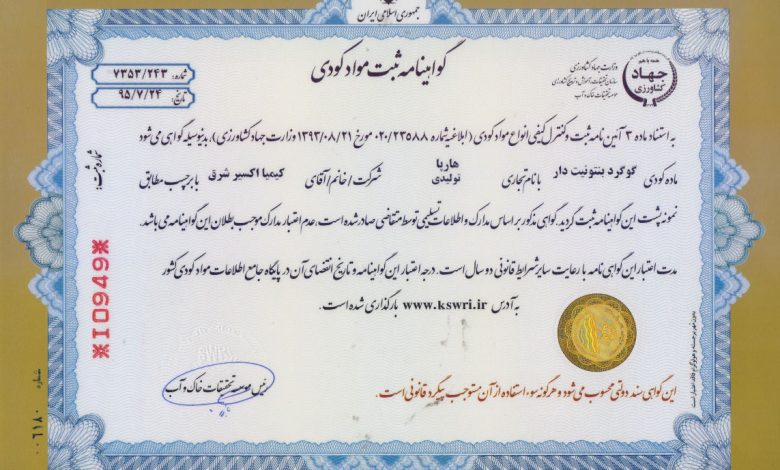 جمهوری اسلامی ایران
گواهینامه ثبت مواد کودی
همه با هم
جهاد
کشاورزی
وزارت جهاد کشاورزی
سازمان تحقیقات، آموزش و ترویج کشاورزی
موسسه تحقیقات خاک و آب
شماره: ۷۳۵۳/۲۴۳
تاریخ: ۹۵/۷/۲۴
به استناد ماده ۳ آئین نامه ثبت و کنترل کیفی انواع مواد کودی (ابلاغیه شماره ۰۲۰/۲۳۵۸۸ مورخ ۱۳۹۳/۰۸/۲۱ وزارت جهاد کشاورزی)، بدینوسیله گواهی می شود
ماده کودی گوگرد بنتونیت دار با نام تجاری هارپا تولیدی شرکت/خانم/آقای کیمیا اکسیر شرق با برچسب مطابق
نمونه پشت این گواهینامه ثبت گردید. گواهی مذکور بر اساس مدارک و اطلاعات تسلیمی توسط متقاضی صادر شده است، عدم اعتبار مدارک موجب بطلان این گواهینامه می باشد.
مدت اعتبار این گواهی نامه با رعایت سایر شرایط قانونی دو سال است. درجه اعتبار این گواهینامه و تاریخ انقضای آن در پایگاه جامع اطلاعات مواد کودی کشور
به آدرس www.kswri.ir بارگذاری شده است.
رئیس موسسه تحقیقات خاک و آب
این گواهی سند دولتی محسوب می شود و هرگونه سوء استفاده از آن مستوجب پیگرد قانونی است.
بدون مهر برجسته و هولوگرام فاقد اعتبار است
شماره ثبت:
*I0949*
شماره ۰۰۶۱۸۰